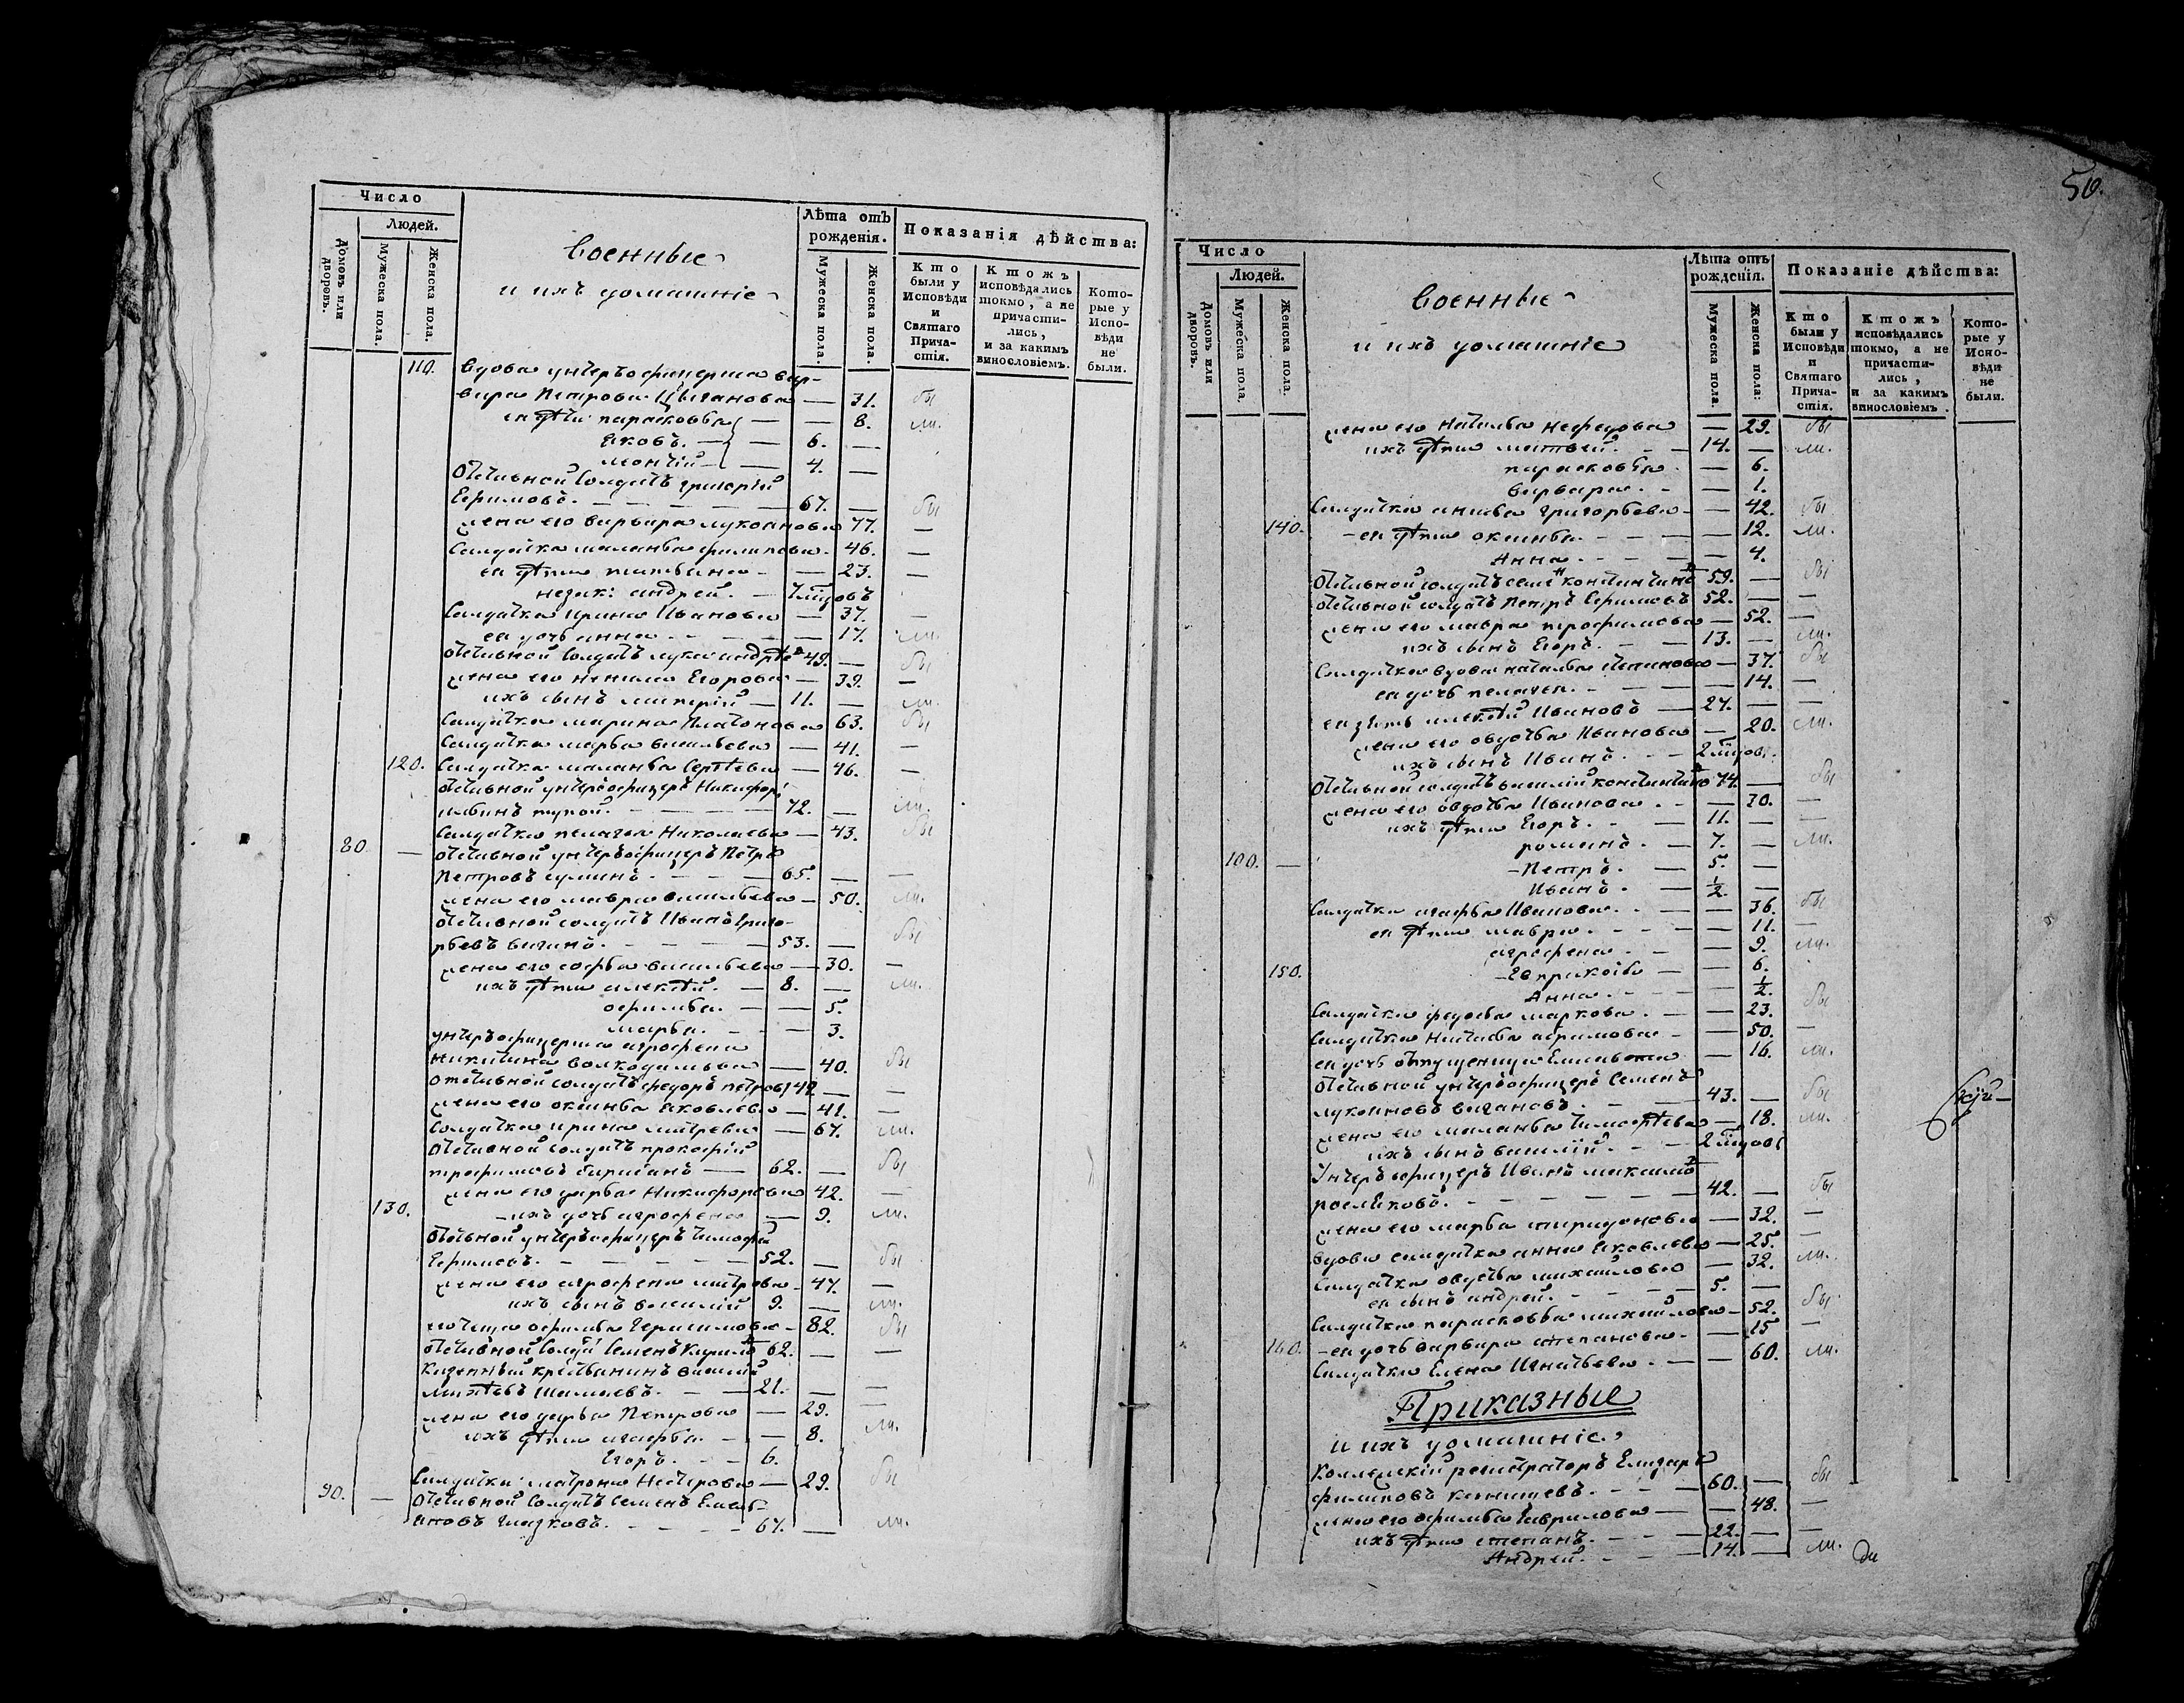 Число
Людей.
Домовъ или дворовъ.
Мужеска пола.
Женска пола.
Военные
и ихъ домашніе
Лѣта отъ рожденія.
Мужеска пола.
Женска пола.
Показанія дѣйства:
Кто были у Исповѣди и Святаго Прича-стія.
Ктожъ исповѣдались токмо, а не причасти-лись, и за какимъ винословіемъ.
Кото-рые у Испо-вѣди не были.
110. Вдова унтеръофицерша вар-
вара Петрова Цыганова — 31. бы
ея дѣти парасковья — — 8. ли.
Яковъ. — — 6. —
леонтій — — 4. —
Отставной Солдатъ григорій
Ефимовъ. — 67. — бы
жена его варвара лукоянова 77. —
Салдатка маланья филипова. 46. —
ея дѣти татьяна — — 23. —
незак: андрей. — годовъ
Салдатка ирина Иванова — 37. —
ея дочь анна — 17. ли.
Отставной Солдатъ лука андрѣе в 49. — бы
жена его ненила Егорова — 39. —
ихъ сынъ дмитрій — 11. — ли.
Салдатка марина Платонова 63. бы
Салдатка марья васильева — 41. —
120. Салдатка маланья Сергѣева — 46. —
Отставной унтеръофицеръ Никифоръ
ильинъ тупой. — 72. — ли.
Салдатка пелагея Николаева — 43. бы
80 — отставной унтеръофицеръ Петръ
Петровъ — 65. — —
жена его мавра васильева — 50. ли.
Отставной солдатъ Иванъ Григо-
рьевъ — 53. — бы
жена его софья васильева — 30. —
ихъ дѣти алексѣй. — 8. — ли.
офимья. — — 5.
марья. — — 3.
унтеръофицерша агрофена
никитина — 40. бы
Отставной солдатъ федоръ петровъ 48. — —
жена его оксинья Яковлева — 41. —
Солдатка ирина дмитрева — 67. ли.
Отставной Солдатъ прокофій
трофимовъ — 62. — бы
жена его дарья Никифорова 42. —
130. — ихъ дочь агрофена — 9. ли.
Отставной унтеръофицеръ тимофей
Ефимовъ. — 52. — бы
жена его агрофена дмитрова — 47. —
ихъ сынъ василій 9. — ли.
его теща офимья Герасимова — 82. бы
отставной Солдатъ Семенъ Кирило в 62. — —
Казенный крестьянинъ василій
— 21. — —
жена его дарья Петрова — 29. —
ихъ дѣти агафья. — — 8. ли.
Егоръ. — 6.
Салдатка матрона Нестерова — 29. бы
90. — Отставной Солдатъ Семенъ
глазковъ. — 67. — ли.
50.
Число
Людей.
Домовъ или дворовъ.
Мужеска пола.
Женска пола.
Военные
и ихъ домашніе
Лѣта отъ рожденія.
Мужеска пола.
Женска пола:
Показаніе дѣйства:
Кто были у Исповѣди и Святаго Прича-стія.
Ктожъ исповѣдались токмо, а не причасти-лись, и за какимъ винословіемъ.
Кото-рые у Испо-вѣди не были.
жена его наталья нефедова — 29. бы
ихъ дѣти матвей. — 14. — ли.
парасковья. — 6.
варвара. — — 1.
Салдатка анисья григорьева — — 42. бы
140. — ея дѣти оксинья. — 12. ли.
Анна. — 4.
Отставной солдатъ семенъ константино в 59. — бы
отставной солдатъ Петръ Ефимовъ 52. — —
жена его мавра трофимова — 52. —
ихъ сынъ Егоръ. — 13. — ли.
Салдатка вдова наталья Степанова — 37. бы
ея дочь пелагея. — 14. —
ея зять алексѣй Ивановъ — 27. — —
жена его овдотья Иванова — 20. ли.
ихъ сынъ Иванъ. — 2 годовъ
Отставной солдатъ василій константино в 74. — бы
жена его овдотья Иванова. — 70. —
ихъ дѣти Егоръ. — 11. — —
романъ. — 7. — ли.
100. — — Петръ. — 5. —
Иванъ. — ½. —
Салдатка агафья Иванова. — — 36. бы
ея дѣти мавра — — 11. —
агрофена — — 9. ли.
150. — — 6.
Анна. — ½.
Салдатка федосья маркова. — — 23. бы
Салдатка Настасья абрамова — — 50. —
ея дочь Елисавета — 16. ли.
Отставной унтеръофицеръ Семенъ
лукояновъ цыгановъ. — 43. — бы
жена его маланья тимофѣева — 18. ли.
ихъ сынъ василій. — 2 годовъ
Унтеръофицеръ Иванъ максимо в
— 42. — бы
жена его марья спиридонова — 32. —
вдова салдатка анна Яковлева — 25. —
Салдатка овдотья михайлова — 32. ли.
ея сынъ андрей. — 5. —
Салдатка парасковья михайлова — 52. бы
160. — ея дочь варвара степанова. — 15 —
Салдатка Елена Игнатьева. — — 60. ли.
Приказные
и ихъ домашніе.
Коллежскій регистраторъ Елизаръ
филиповъ — 60. — бы
жена его офимья Гаврилова — — 48. —
ихъ дѣти степанъ. — 22. — —
Андрей. — 14. — ли.